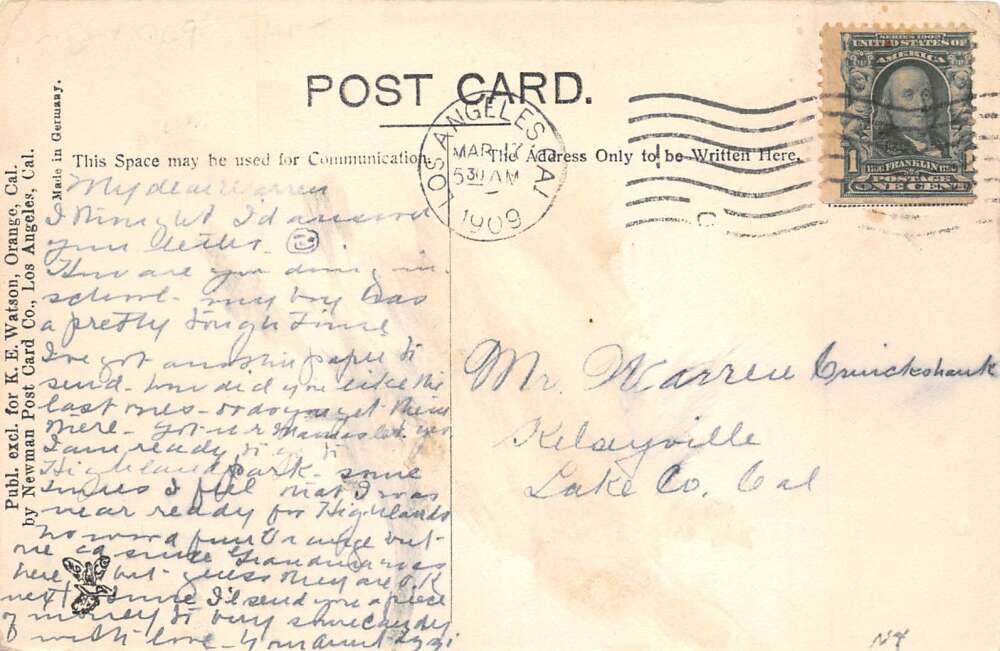 POST CARD.
This Space may be used for Communication.
The Address Only to be Written Here.
Publ. excl. for K. E. Watson, Orange, Cal.
by Newman Post Card Co., Los Angeles, Cal.
Made in Germany.
LOS ANGELES, CAL
MAR 17
530 AM
1909
SERIES 1902
UNITED STATES OF
AMERICA
FRANKLIN
1
POSTAGE
ONE CENT
My dear Warren
I thought I'd answer
your letter.
How are you doing in
school - my boy has
a pretty tough time
I've got another paper to
send - how did you like the
last ones - or do you get them
there - got
I am ready to go to
Highland park - some
times I feel that I was
near ready for Highlands
no word from Orange but
since Grandma was
here but guess they are O.K
next time I'll send you a piece
of money to buy some candy
with love - Your Aunt
Mr. Warren Cruickshank
Kelseyville
Lake Co. Cal